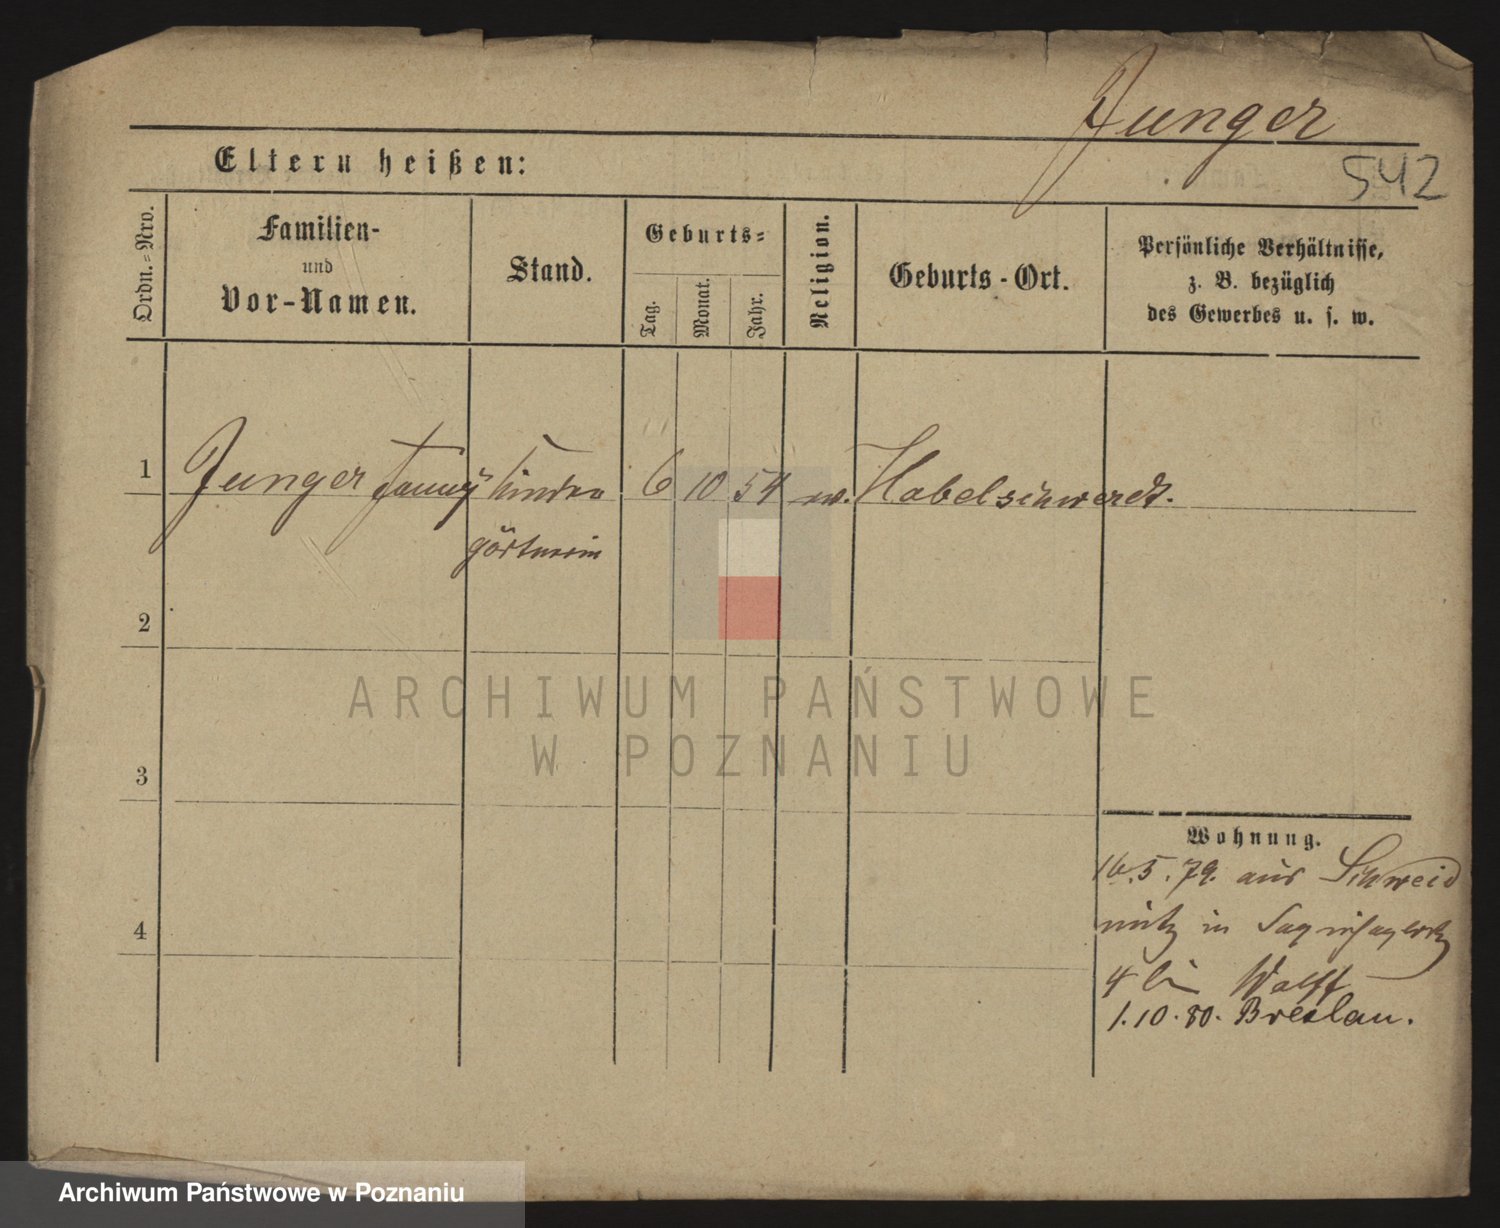 Junger
542
Eltern heißen:
Ordn.-Nro.
Familien-
und
Vor-Namen.
Stand.
Geburts-
Tag.
Monat.
Jahr.
Religion.
Geburts-Ort.
Persönliche Verhältnisse,
z. B. bezüglich
des Gewerbes u. s. w.
1 Junger Fanny Kinder 6 10 54 ev. Habelschwerdt.
gärtnerin
2
ARCHIWUM PAŃSTWOWE
W POZNANIU
3
Wohnung.
16.5.79. aus Schweid
nitz in
4
4 bei Wolff
1.10.80. Breslau.
Archiwum Państwowe w Poznaniu